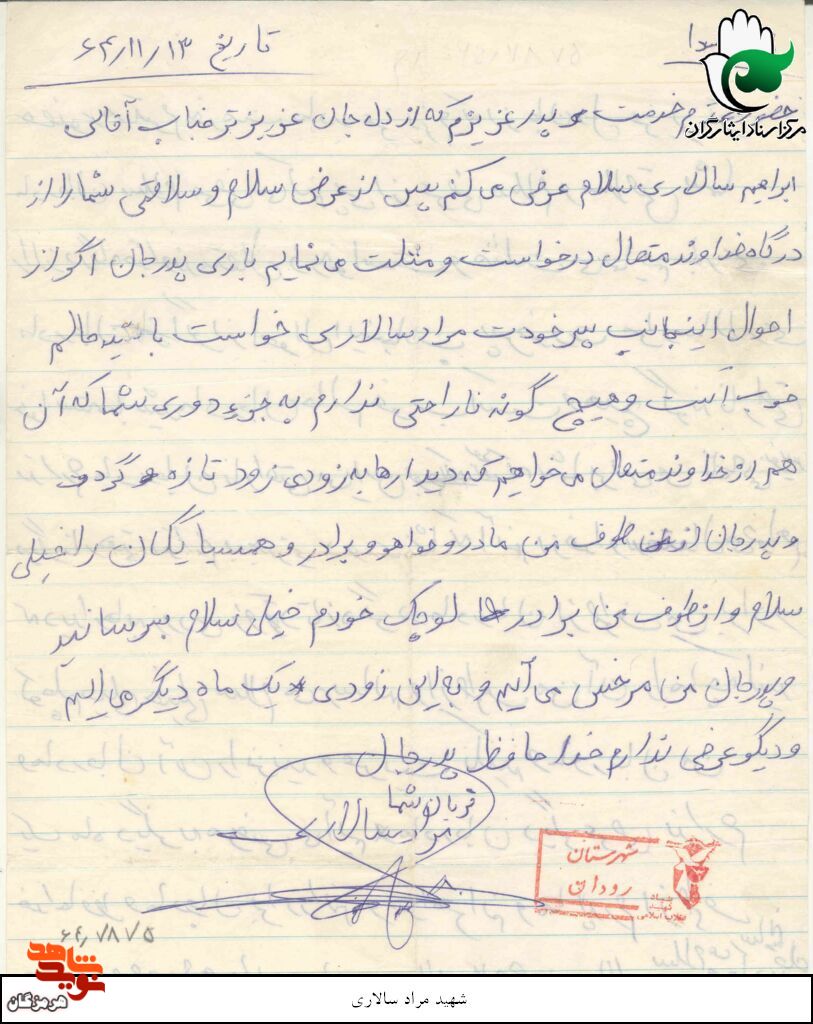 تاریخ ۶۴/۱۱/۱۳
مرکز اسناد ایثارگران
خدمت پدر عزیزم که از دل جان عزیز تر جناب آقای
ابراهیم سالاری سلام عرض می کنم پس از عرض سلام و سلامتی شما را از
درگاه خداوند متعال درخواست و مثلت می نمایم باری پدر جان اگر از
احوال اینجانب پسر خودت مراد سالاری خواست باشید حالم
خوب است و هیچ گونه ناراحتی ندارم به جزء دوری شما که آن
هم از خداوند متعال می خواهیم که دیدارها به زودی زود تازه گردد
و پدر جان از طرف من مادر و خواهر و برادر و همسیایگان را خیلی
سلام و از طرف من برادر کوچک خودم خیلی سلام برسانید
و پدر جان من مرخصی می آیم و به این زودی یک ماه دیگر می ایم
و دیگر عرضی ندارم خدا حافظ پدر جان
قربان شما
مراد سالاری
شهرستان
رودان
بنیاد
شهید
انقلاب اسلامی
۶۴/۷۸۷۵
نوید شاهد
هرمزگان
شهید مراد سالاری